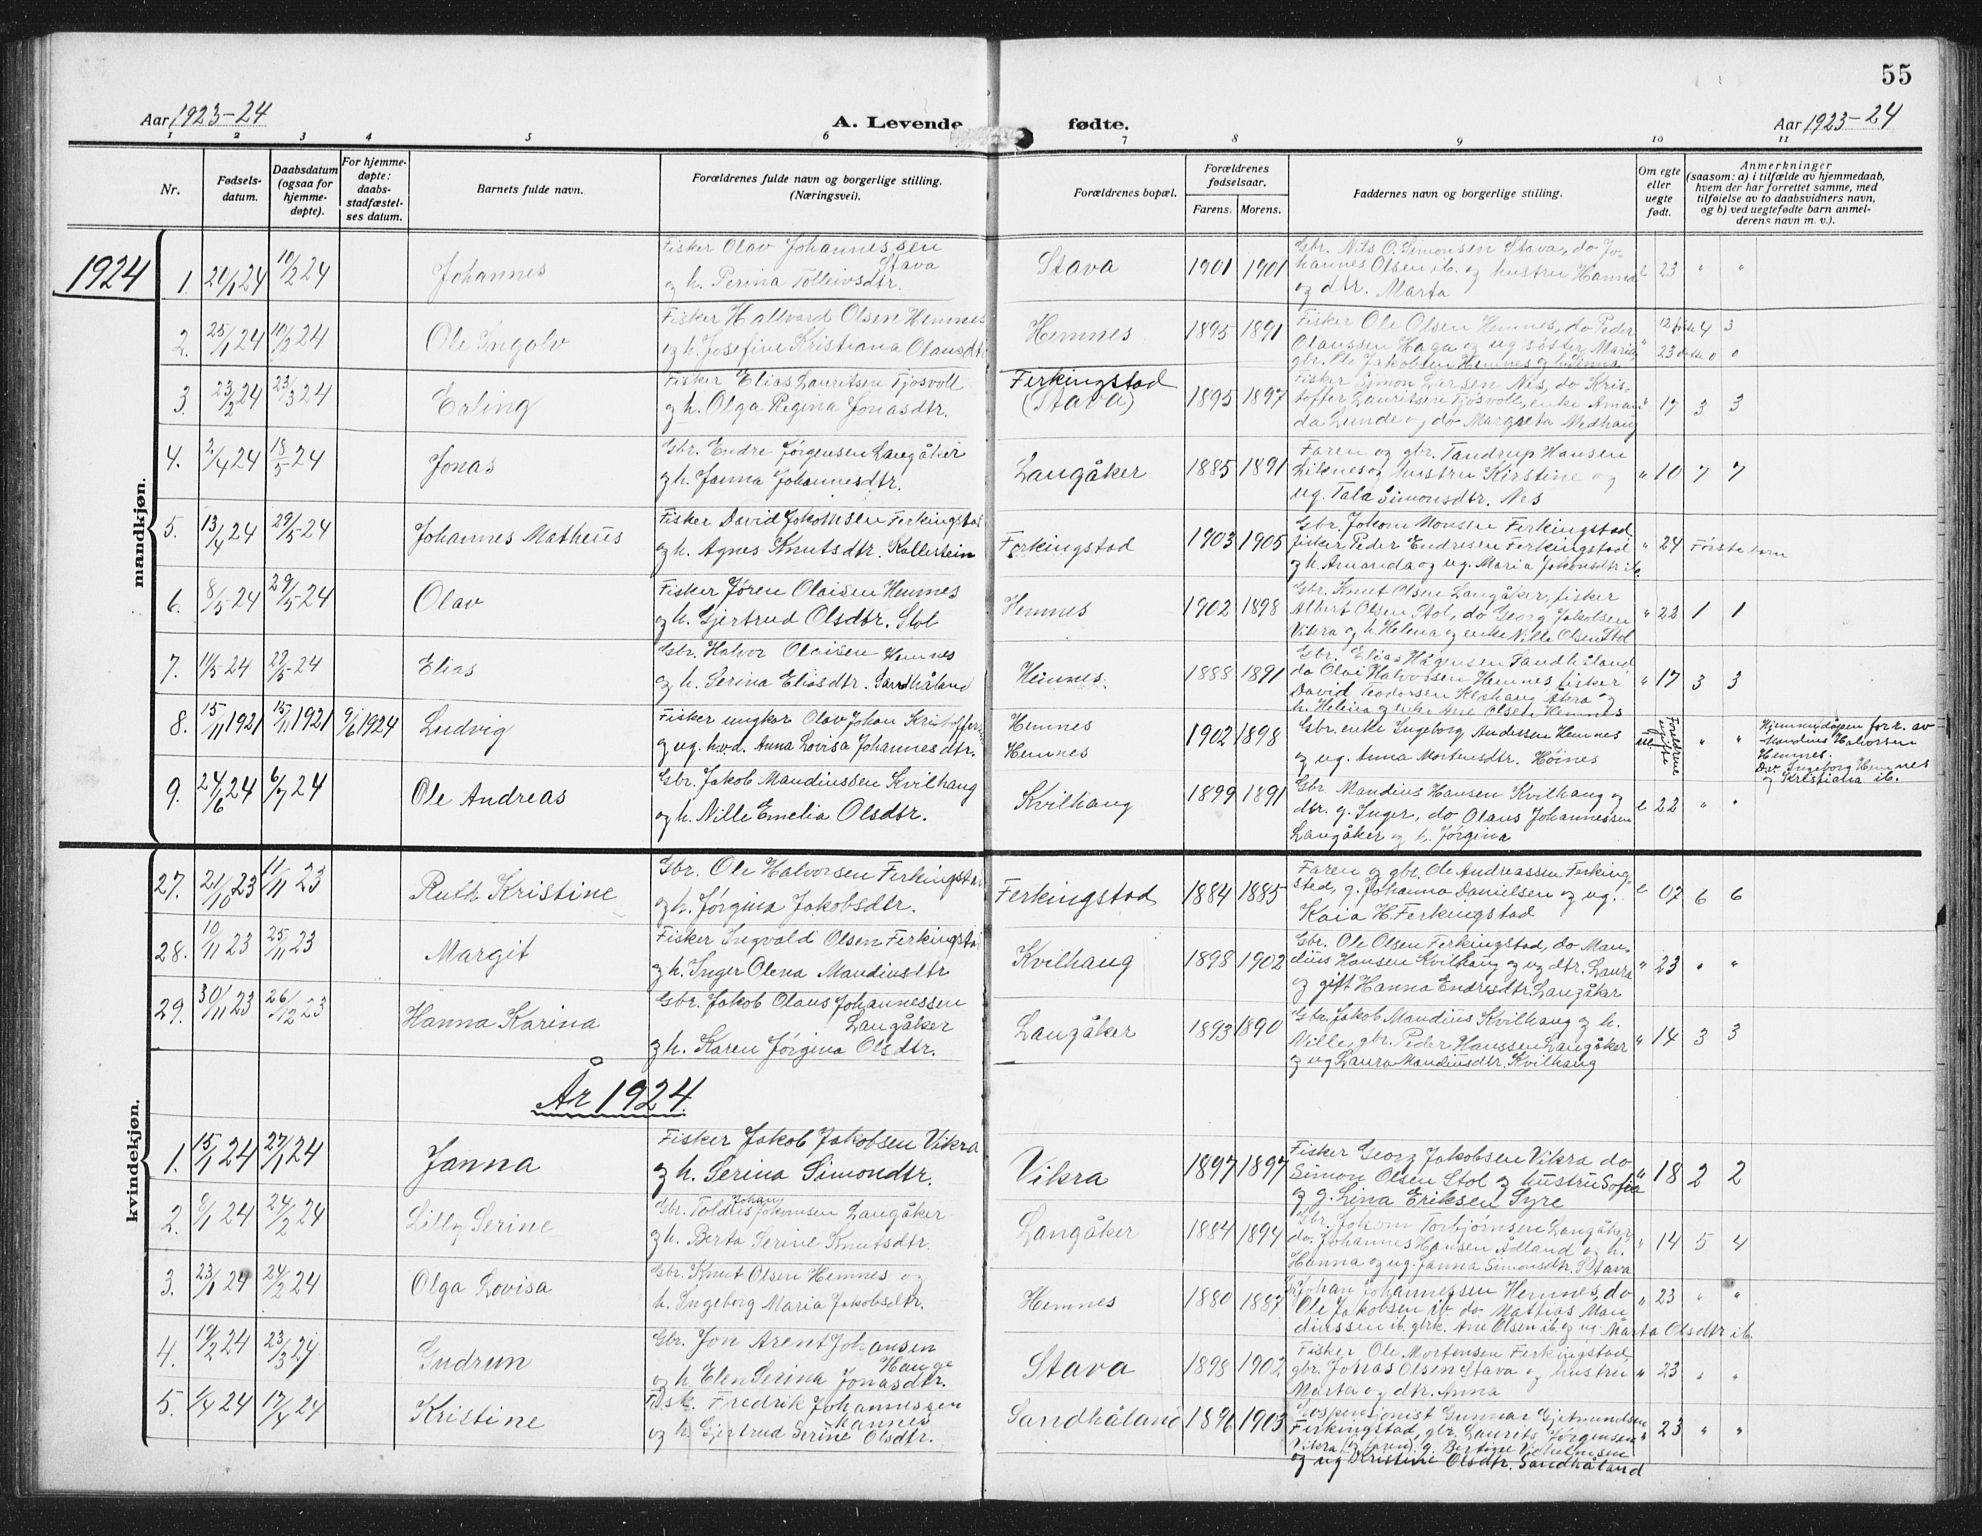 55
Aar 1923-24 A. Levende fødte. Aar 1923-24
1 2 3 4 5 6 7 8 9 10 11
Nr.
Fødsels-
datum.
Daabsdatum
(ogsaa for
hjemme-
døpte).
For hjemme-
døpte:
daabs-
stadfæstel-
ses datum.
Barnets fulde navn.
Forældrenes fulde navn og borgerlige stilling.
(Næringsvei).
Forældrenes bopæl.
Forældrenes
fødselsaar.
Farens. Morens.
Faddernes navn og borgerlige stilling.
Om egte
eller
uegte
født.
Anmerkninger
(saasom: a) i tilfælde av hjemmedaab,
hvem der har forrettet samme, med
tilføielse av to daabsvidners navn,
og b) ved uegtefødte barn anmel-
derens navn m. v.).
1924
mandkjøn.
1. 20/1 24 10/2 24 Johannes
Fisker Olav Johannessen
Stava
og h. Perina Tolleivsdtr.
Stava 1901 1901
Gbr. Nils O. Simonsen Stava, do Jo-
hannes Olsen ib. og hustru Hanna
og dtr. Marta
e 23 " "
2. 25/1 24 10/2 24 Ole Ingolv
Fisker Hallvard Olsen Hemnes
og h. Josefine Kristiana Olausdtr
Hemnes 1895 1891
Fisker Ole Olsen Hemnes, do Peder
Olaussen Haga og ug. søster Maria
gbr. Ole Jakobsen Hemnes og h.
" 4 3
23 0 0
3. 23/2 24 23/3 24 Erling
Fisker Elias Lauritsen Tjosvoll
og h. Olga Regina Jonasdtr.
Ferkingstad
(Stava) 1895 1897
Fisker Simon Larsen Nes, do Kris-
toffer Lauritsen Tjosvoll, enke Aman-
da Lunde og do Margreta Medhaug
" 17 3 3
4. 2/4 24 18/5 24 Jonas
Gbr. Endre Jørgensen Langåker
og h. Janna Johannesdtr.
Langåker 1885 1891
Faren og gbr. Tandrup Hansen
Liknes og hustru Kirstine og
ug. Tala Simonsdtr. Nes
" 10 7 7
5. 13/4 24 29/5 24 Johannes Matheus
Fisker David Jakomsen Ferkingstad
og h. Agnes Knutsdtr. Kallertein
Ferkingstad 1903 1905
Gbr. Jakom Monsen Ferkingstad,
fisker Peder Endresen Ferkingstad
og h. Amanda og ug. Maria Jakomsdtr ib.
" 24 Første barn
6. 8/5 24 29/5 24 Olav
Fisker Jøren Olaisen Hemnes
og h. Gjertrud Olsdtr. Stol
Hemnes 1902 1898
Gbr. Knut Olsen Langåker, fisker
Albert Olsen Stol, do Georg Jakobsen
Vikra og h. Helena og enke Nille Olsen Stol
" 22 1 1
7. 11/5 24 29/5 24 Elias
Gbr. Halvor Olaisen Hemnes
og h. Serina Eliasdtr. Sandhåland
Hemnes. 1888 1891
Gbr. Elias Hågensen Sandhåland
do Olai Halvorsen Hemnes fisker
David Teodorsen Åkra og
h. Helena og enke Ane Olsen Hemnes
" 17 3 3
8. 15/11 1921 15/11 1921 9/6 1924 Ludvig
Fisker ungkar Olav Johan Kristoffersen
og ug. h.v.d. Anna Lovisa Johannesdtr.
Hemnes
Hemnes 1902 1898
Gbr. enke Ingeborg Andersen Hemnes
og ug. Anna Mortensdtr. Høines
Foreldrene
ugifte " "
Hjemmedåpen forr. av
Mandius Halvorsen
Hemnes.
D.v. Ingeborg Hemnes
og Kristiana ib.
9. 24/6 24 6/7 24 Ole Andreas
Gbr. Jakob Mandiussen Kvilhaug
og h. Nille Emelia Olsdtr.
Kvilhaug 1899 1891
Gbr. Mandius Hansen Kvilhaug og
dtr. g. Inger, do Olaus Johannessen
Langåker og h. Jørgina
e 22 " "
kvindekjøn.
27. 21/10 23 11/11 23 Ruth Kristine
Gbr. Ole Halvorsen Ferkingstad
og h. Jørgina Jakobsdtr.
Ferkingstad 1884 1885
Faren og gbr. Ole Andreassen Ferking-
stad, g. Johanna Danielsen og ug.
Kaia H. Ferkingstad
e 07 6 6
28. 10/11 23 25/11 23 Margit
Fisker Ingvald Olsen Ferkingstad
og h. Inger Olena Mandiusdtr
Kvilhaug 1898 1902
Gbr. Ole Olsen Ferkingstad, do Man-
dius Hansen Kvilhaug og ug dtr. Laura
og gift Hanna Endresdtr. Langåker
" 23 " "
29. 30/11 23 26/12 23 Hanna Karina
Gbr. Jakob Olaus Johannessen
Langåker
og h. Karen Jørgina Olsdtr.
Langåker 1893 1890
Gbr. Jakob Mandius Kvilhaug og h.
Nille, gbr. Peder Hanssen Langåker
og ug Laura Mandiusdtr. Kvilhaug
" 14 3 3
År 1924
1. 15/1 24 27/1 24 Janna
Fisker Jakob Jakobsen Vikra
og h. Serina Simondtr.
Vikra 1897 1897
Fisker Georg Jakobsen Vikra do
Simon Olsen Stol og hustru Sofia
og g. Lina Eriksen Syre
" 18 2 2
2. 9/1 24 24/2 24 Lilly Serine
Johan
Gbr. Toldus Jakomsen Langåker
og h. Berta Serine Knutsdtr.
Langåker 1884 1894
Gbr. Jakom Torbjørnsen Langåker
do. Johannes Hansen Ådland og h.
Hanna og ug. Janna Simonsdtr. Stava
" 14 5 4
3. 23/1 24 24/2 24 Olga Lovisa
Gbr. Knut Olsen Hemnes og
h. Ingeborg Maria Jakobsdtr.
Hemnes 1880 1887
Johan Johannessen Hemnes, do
Ole Jakobsen ib do Mathias Man-
diussen ib. gbrk. Ane Olsen ib. og ug. Marta Olsdtr ib.
" 23 " "
4. 19/2 24 23/3 24 Gudrun
Gbr. Jon Arent Johansen
Hauge
og h. Elen Serina Jonasdtr.
Stava 1898 1902
Fisker Ole Mortensen Ferkingstad,
gbr. Jonas Olsen Stava og hustru
Marta og dtr. Anna
" 23 " "
5. 1/4 24 17/4 24 Kristine
Fisk. Fredrik Johannessen
Mannes
og h. Gjertrud Serine Olsdtr.
Sandhåland 1896 1903
Gunnar Gjetmundsen
Ferkingstad, gbr. Laurits Jørgensen
Vikra (og faren), g. Bertine Vilhelmsen
og ug Kristine Olsdtr. Sandhåland
" 23 " "